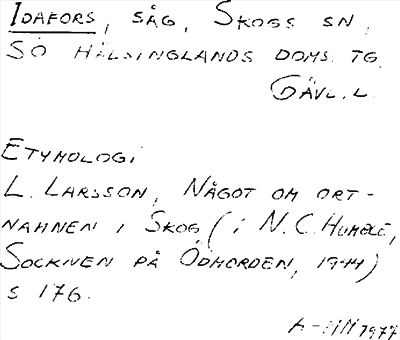 IDAFORS, SÅG, SKOGS SN,
SÖ HÄLSINGLANDS DOMS. TG.
GÄVL. L.
ETYMOLOGI
L. LARSSON, NÅGOT OM ORT-
NAMNEN I SKOG (I N. C. HUMBLE,
SOCKNEN PÅ ÖDMORDEN, 1944)
S 176.
1977